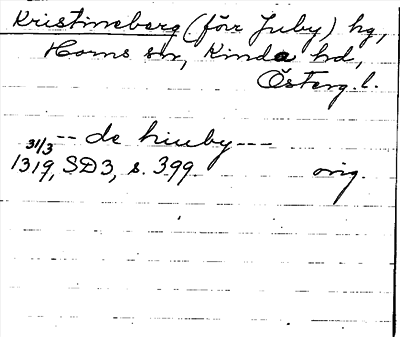 Kristineberg (förr Juby) hg,
Horns sn, Kinda hd,
Österg. l.
-- de hiuby ---
31/3
1319, SD3, s. 399 orig.